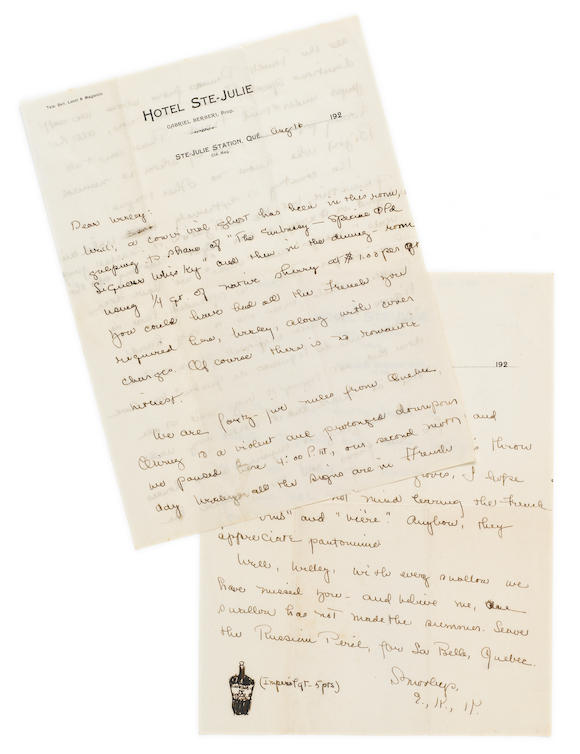 Tele. Bell, Local & Megantic
HOTEL STE-JULIE
GABRIEL BERBERI, Prop.
STE-JULIE STATION, QUE. Aug 16 192
Dear Wesley:
Well, a convivial ghost has been in this room,
gulping its share of "The Embassy - Special Old
Liqueur Whis'ky" and then in the dining-room
using 1/4 gt. of native sherry at $1.00 per gt
You could have had all the French you
required here, Wesley, along with cover
charges. Of course there is no romantic
interest.
We are forty-five miles from Quebec.
Owing to a violent and prolonged downpour
we paused here 4:00 P.M., our second night and
day Wesley all the signs are in French
192
throw
I hope
not mind hearing the French
"vins" and "bière". Anyhow, they
appreciate pantomime
Well, Wesley, with every swallow we
have missed you - and believe me, one
swallow has not made the summer. Leave
the Russian Peril, for La Belle, Quebec.
(Imperial qt - 5 pts)
E., K., K.